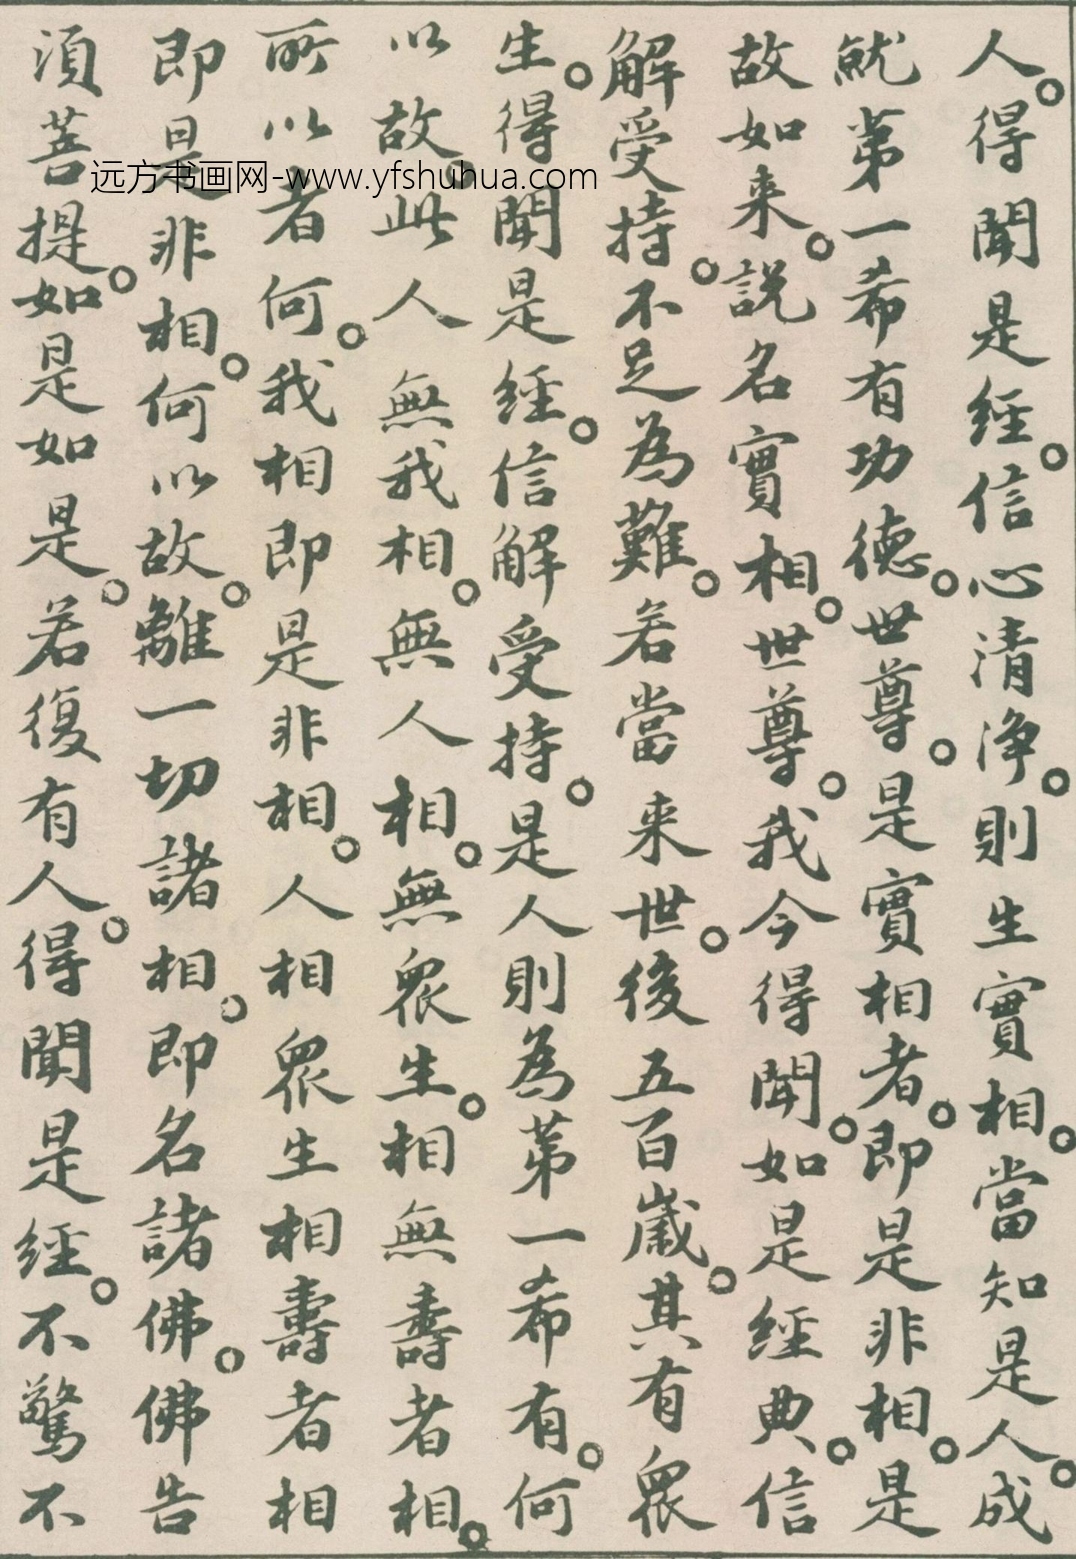 人。得聞是經。信心清淨。則生實相。當知是人。成
就第一希有功德。世尊。是實相者。即是非相。是
故如來。說名實相。世尊。我今得聞。如是經典。信
解受持。不足為難。若當來世。後五百歲。其有眾
生。得聞是經。信解受持。是人則為第一希有。何
以故。此人無我相。無人相。無眾生。相無壽者相。
所以者何。我相即是非相。人相眾生相壽者相
即是非相。何以故。離一切諸相。即名諸佛。佛告
須菩提。如是如是。若復有人。得聞是經。不驚不
远方书画网-www.yfshuhua.com